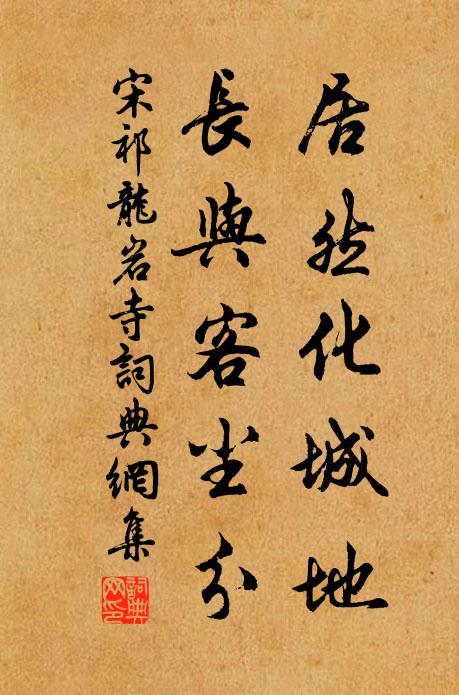 居然化城地
長與客尘分
宋祁龍岩寺詞典網集
詞典網印